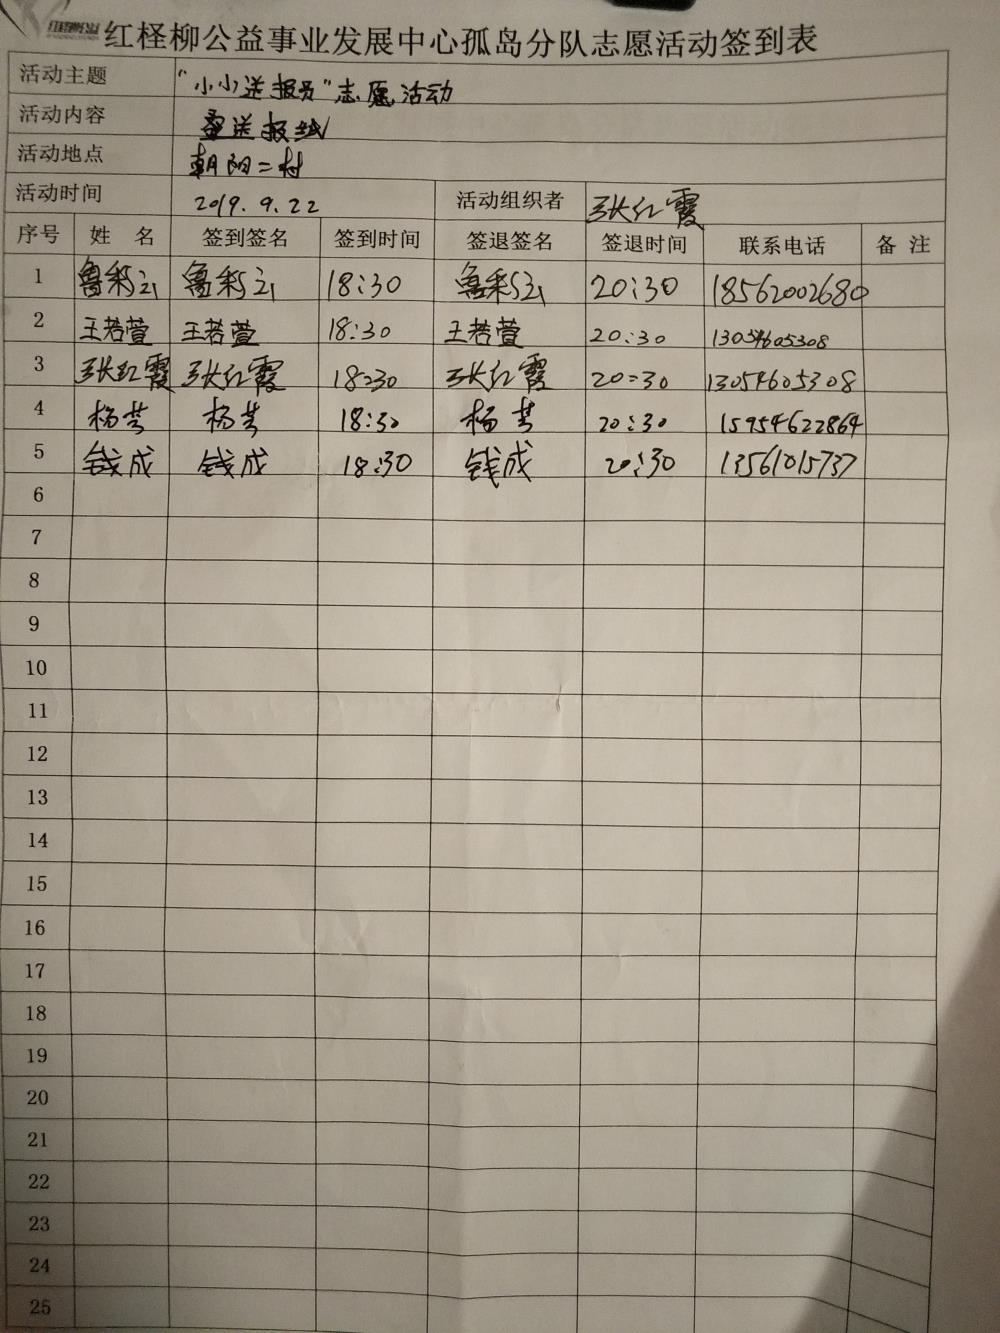 红柽柳公益事业发展中心孤岛分队志愿活动签到表
活动主题 "小小送报员"志愿活动
活动内容 送报纸
活动地点 朝阳二村
活动时间 2019.9.22 活动组织者 张红霞
序号 姓 名 签到签名 签到时间 签退签名 签退时间 联系电话 备 注
1 鲁彩云 鲁彩云 18:30 鲁彩云 20:30 18562002680
2 王若萱 王若萱 18:30 王若萱 20:30 13054605308
3 张红霞 张红霞 18:30 张红霞 20:30 13054605308
4 杨 杨 18:30 杨 20:30 15954622864
5 钱成 钱成 18:30 钱成 20:30 13561015737
6
7
8
9
10
11
12
13
14
15
16
17
18
19
20
21
22
23
24
25